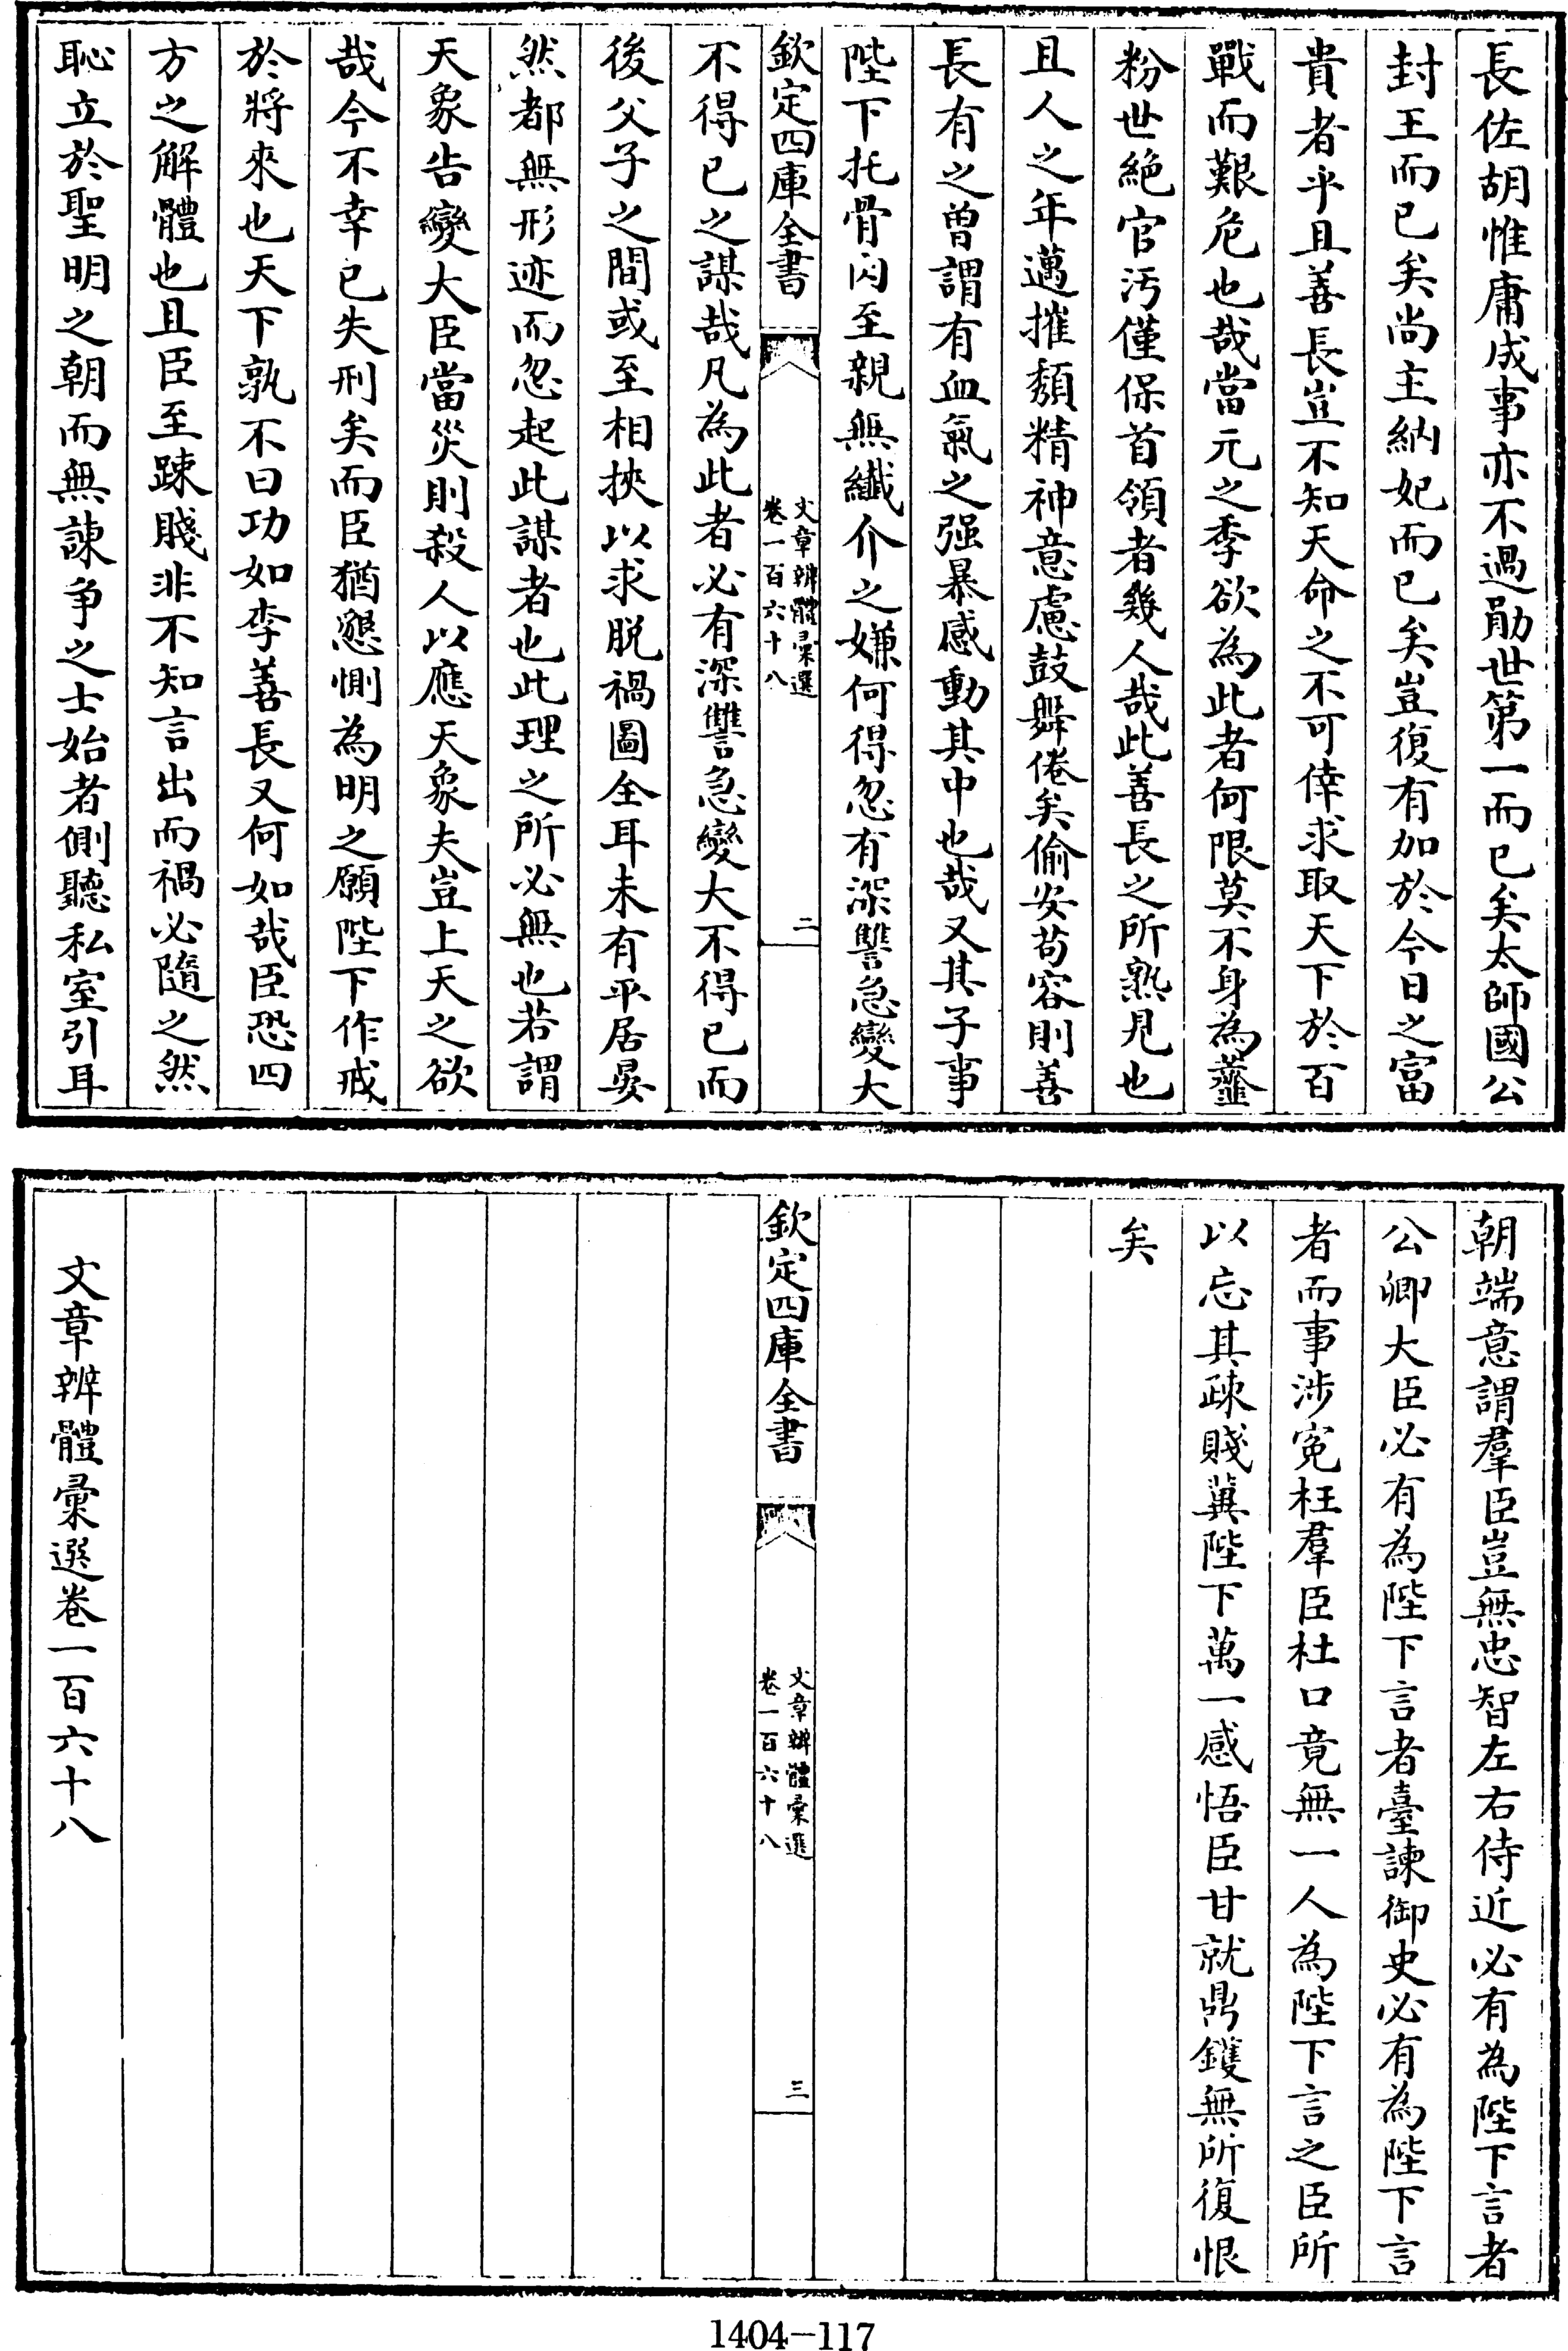 長佐胡惟庸成事亦不過勛世第一而已矣太師國公
封王而已矣尚主納妃而已矣豈復有加於今日之富
貴者乎且善長豈不知天命之不可倖求取天下於百
戰而艱危也哉當元之季欲為此者何限莫不身為虀
粉世絶官汚僅保首領者幾人哉此善長之所熟見也
且人之年邁摧頽精神意慮鼓舞倦矣偷安茍容則善
長有之曾謂有血氣之强暴感動其中也哉又其子事
陛下托骨肉至親無纖介之嫌何得忽有深讐急變大
欽定四庫全書
文章辨體彙選
卷一百六十八
二
不得已之謀哉凡為此者必有深讐急變大不得已而
後父子之間或至相挾以求脱禍圖全耳未有平居晏
然都無形迹而忽起此謀者也此理之所必無也若謂
天象告變大臣當災則殺人以應天象夫豈上天之欲
哉今不幸已失刑矣而臣猶懇惻為明之願陛下作戒
於將來也天下孰不曰功如李善長又何如哉臣恐四
方之解體也且臣至踈賤非不知言出而禍必隨之然
恥立於聖明之朝而無諫争之士始者側聽私室引耳
朝端意謂羣臣豈無忠智左右侍近必有為陛下言者
公卿大臣必有為陛下言者臺諫御史必有為陛下言
者而事涉寃枉羣臣杜口竟無一人為陛下言之臣所
以忘其疎賤冀陛下萬一感悟臣甘就鼎鑊無所復恨
矣
欽定四庫全書
文章辨體彙選
卷一百六十八
三
文章辨體彙選卷一百六十八
1404-117